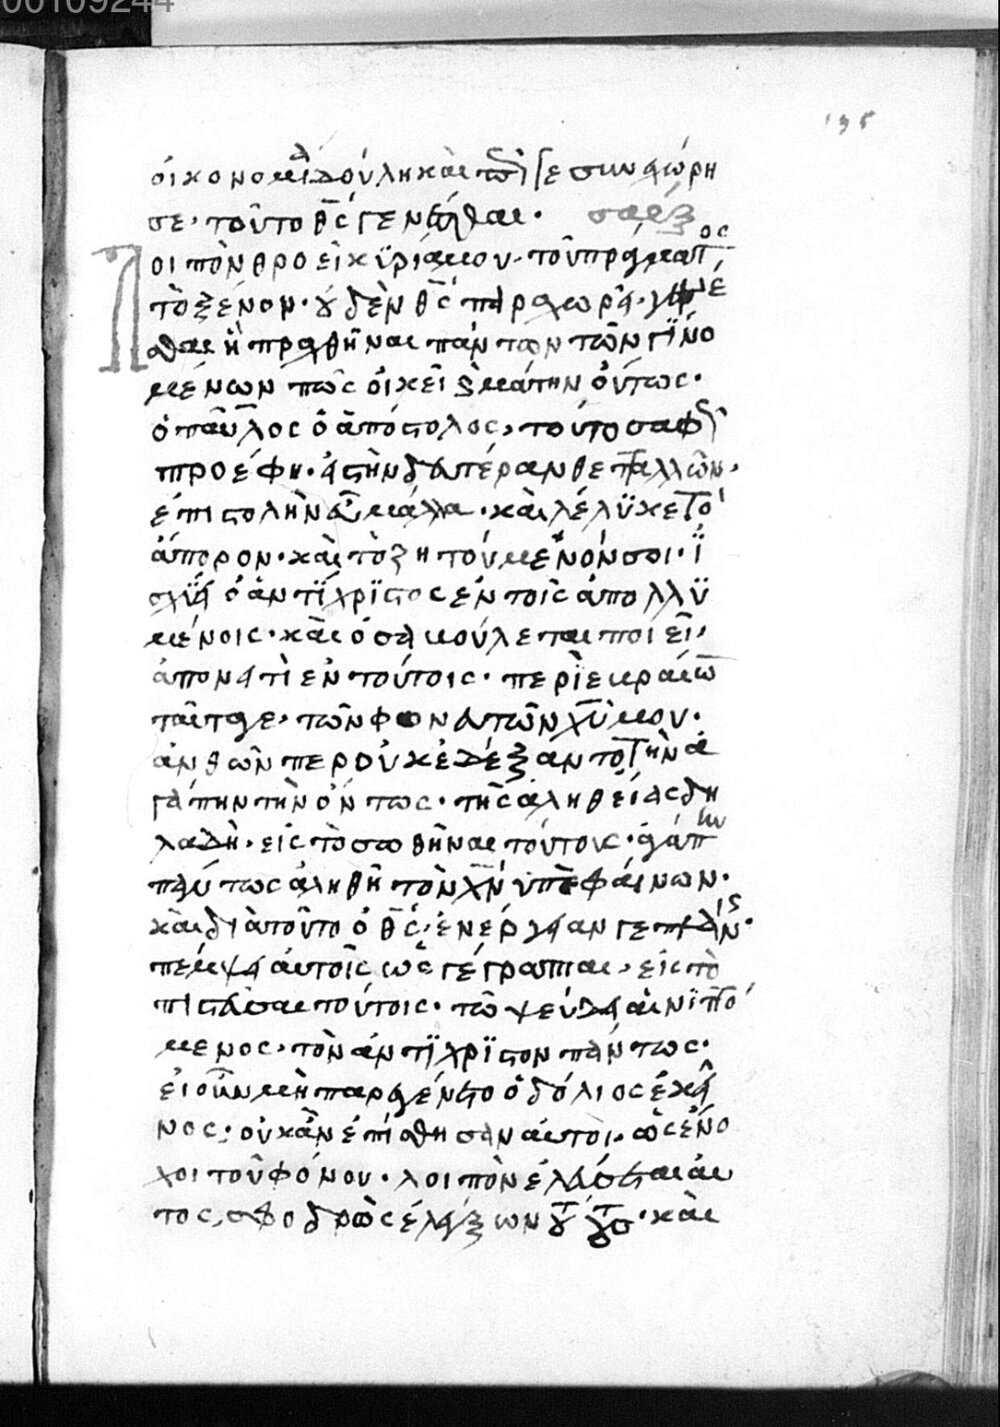 00109244
135
οἰκονομία δούλη καὶ πῶς συνεχώρη
σε· τοῦτο θ̅ς̅ γενέσθαι·
οιπὸν θροεῖ κυρία μου· τοῦ πράγματος
τὸ ξένον· οὐδὲν θ̅ς̅ παραχωρεῖ· γίνε
σθαι ἢ πραχθῆναι πάντων τῶν γινο
μένων πῶς οἰκεῖ μάτην οὕτως·
ὁ παῦλος ὁ ἀπόστολος, τοῦτο σαφῶς
προέφη· εἰς τὴν δευτέραν θετταλλῶν·
ἐπιστολὴν μάλα· καὶ λέλυκε τὸ
ἄπορον· καὶ τὸ ζητούμενόν σοι· ἰ
σχύει ὁ ἀντίχριστος ἐν τοῖς ἀπολλυ
μένοις· καὶ ὅσα βούλεται ποιεῖ,
ἀπονεῖ τι ἐν τούτοις· περὶ ἑβραίων
πάντως, τῶν φονευτῶν χ̅υ̅ μου·
ἀνθῶνπερ οὐκ ἐδέξαντο τὴν ἀ
γάπην τὴν ὄντως· τῆς ἀληθείας δη
λαδὴ· εἰς τὸ σωθῆναι τούτους· ἀγάπην
πάντως ἀληθῆ τὸν χ̅ν̅ ὑπεμφαίνων·
καὶ διὰ τοῦτο ὁ θ̅ς̅· ἐνέργειαν γε πλάνης·
πέμψει αὐτοῖς ὡς γέγραπται, εἰς τὸ
πιστεῦσαι τούτοις· τῷ ψεύδει αἰνιττό
μενος, τὸν ἀντίχριστον πάντως·
εἰ οὖν μὴ παρεγένετο ὁ δόλιος ἐκεῖ
νος· οὐκ ἂν ἐπείσθησαν αὐτοὶ· ὡς ἔνο
χοι τοῦ φόνου· λοιπὸν ἐλεύσεται αὐ
τος, σφοδρῶς ἐλέγξων τούτους· καὶ